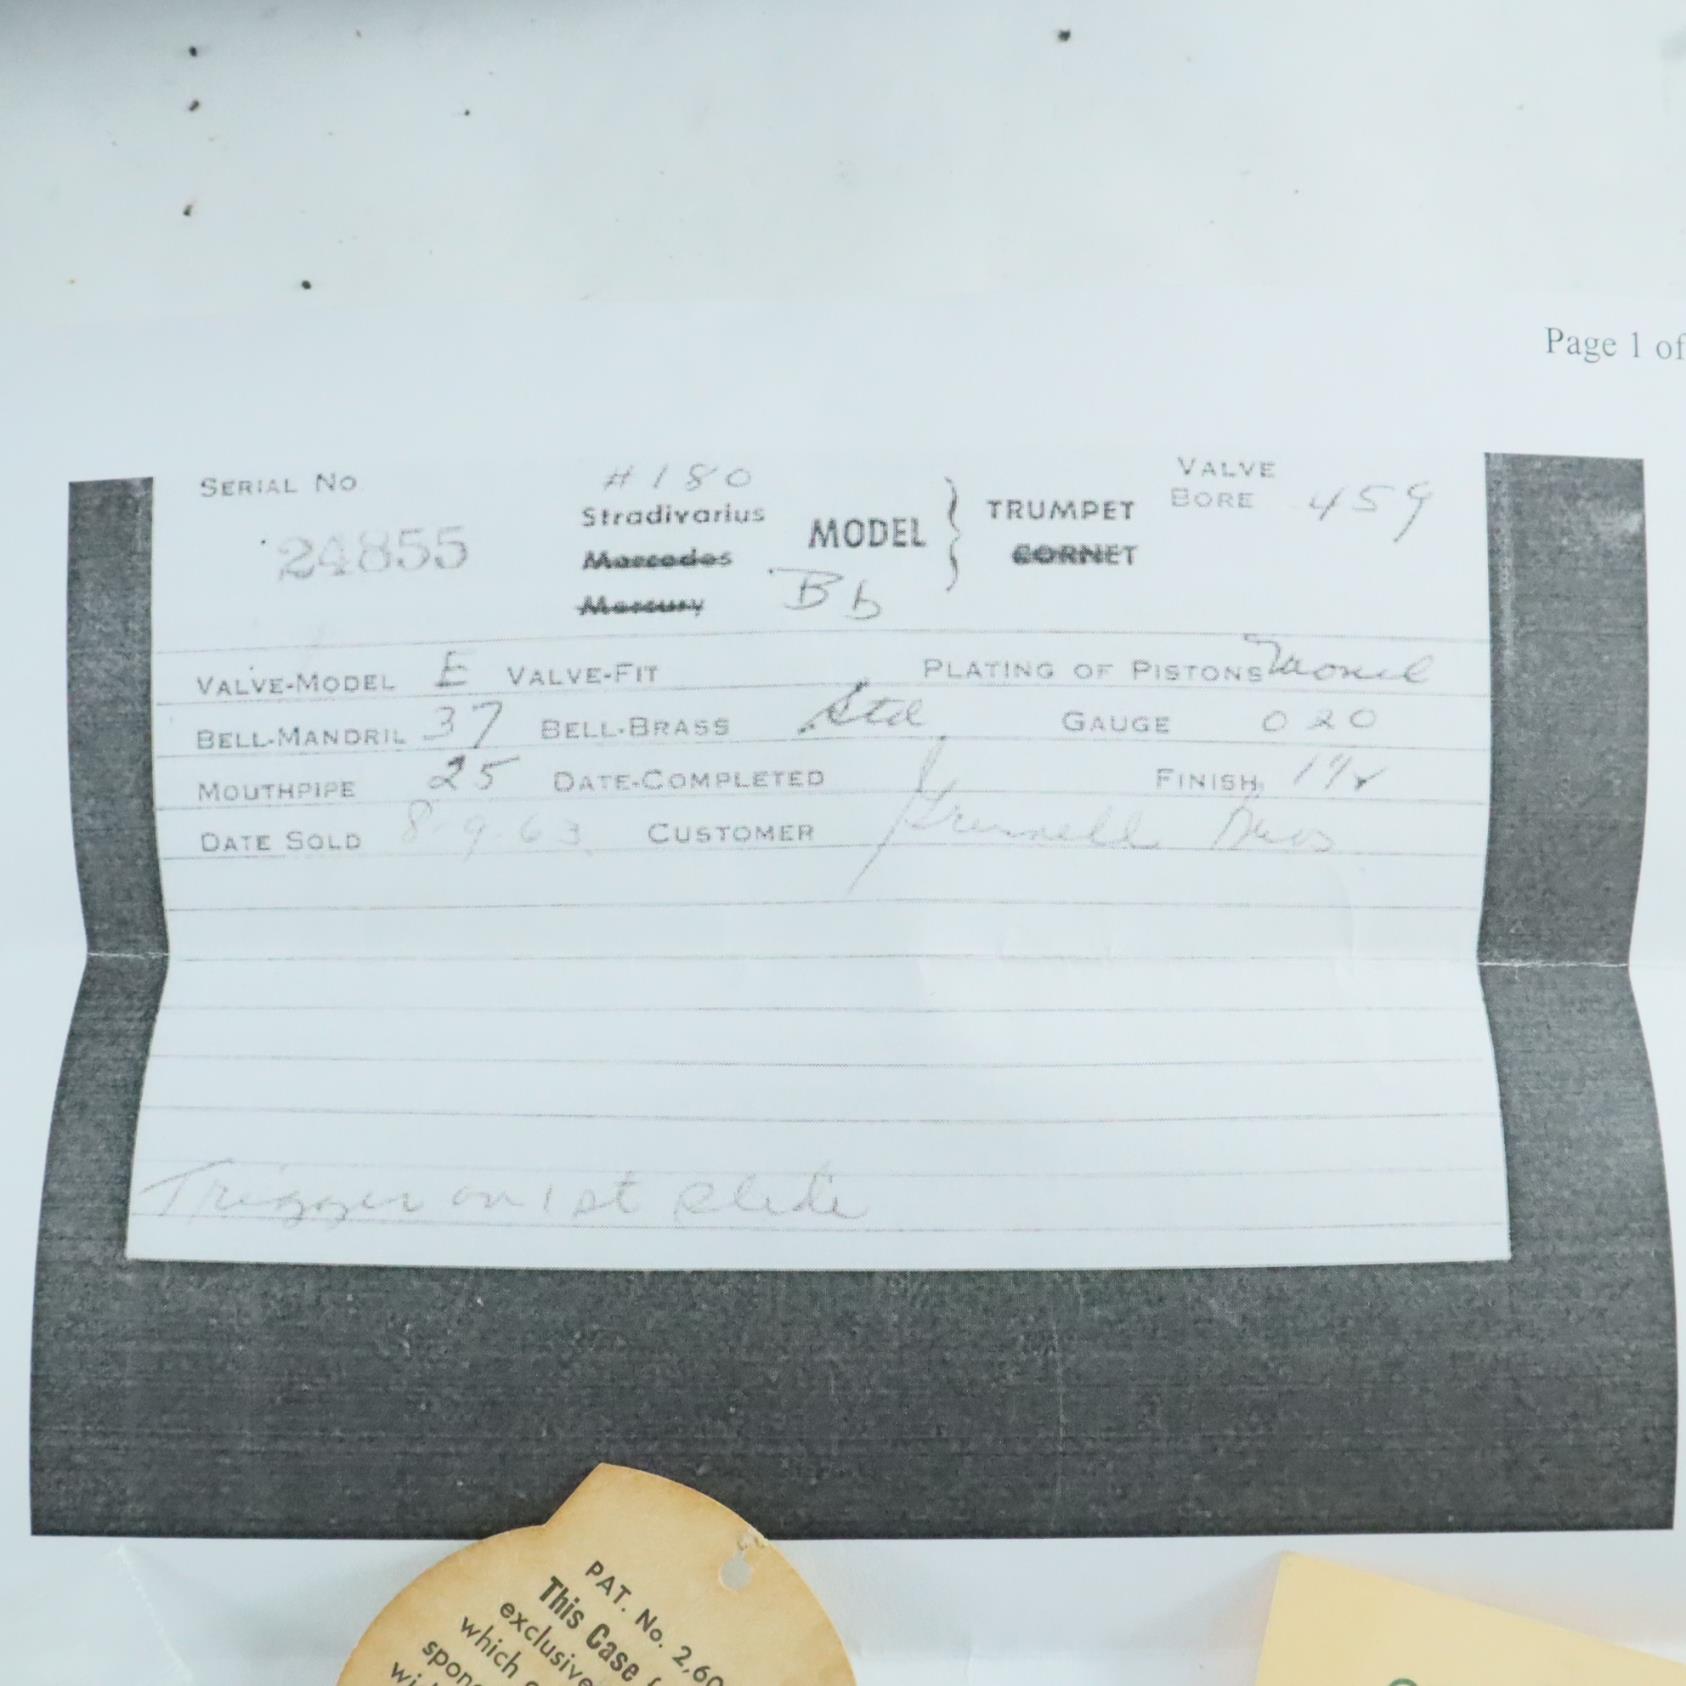 Page 1 of
SERIAL NO #180 VALVE
Stradivarius MODEL TRUMPET BORE 459
24855 Mercedes CORNET
Mercury Bb
VALVE-MODEL E VALVE-FIT PLATING OF PISTONS Monel
BELL-MANDRIL 37 BELL-BRASS Std GAUGE 020
MOUTHPIPE 25 DATE-COMPLETED FINISH
DATE SOLD 8-9-63 CUSTOMER Grinnell Bros
Trigger on 1st slide
PAT. No. 2,60
This Case
exclusive
which
spon
wi